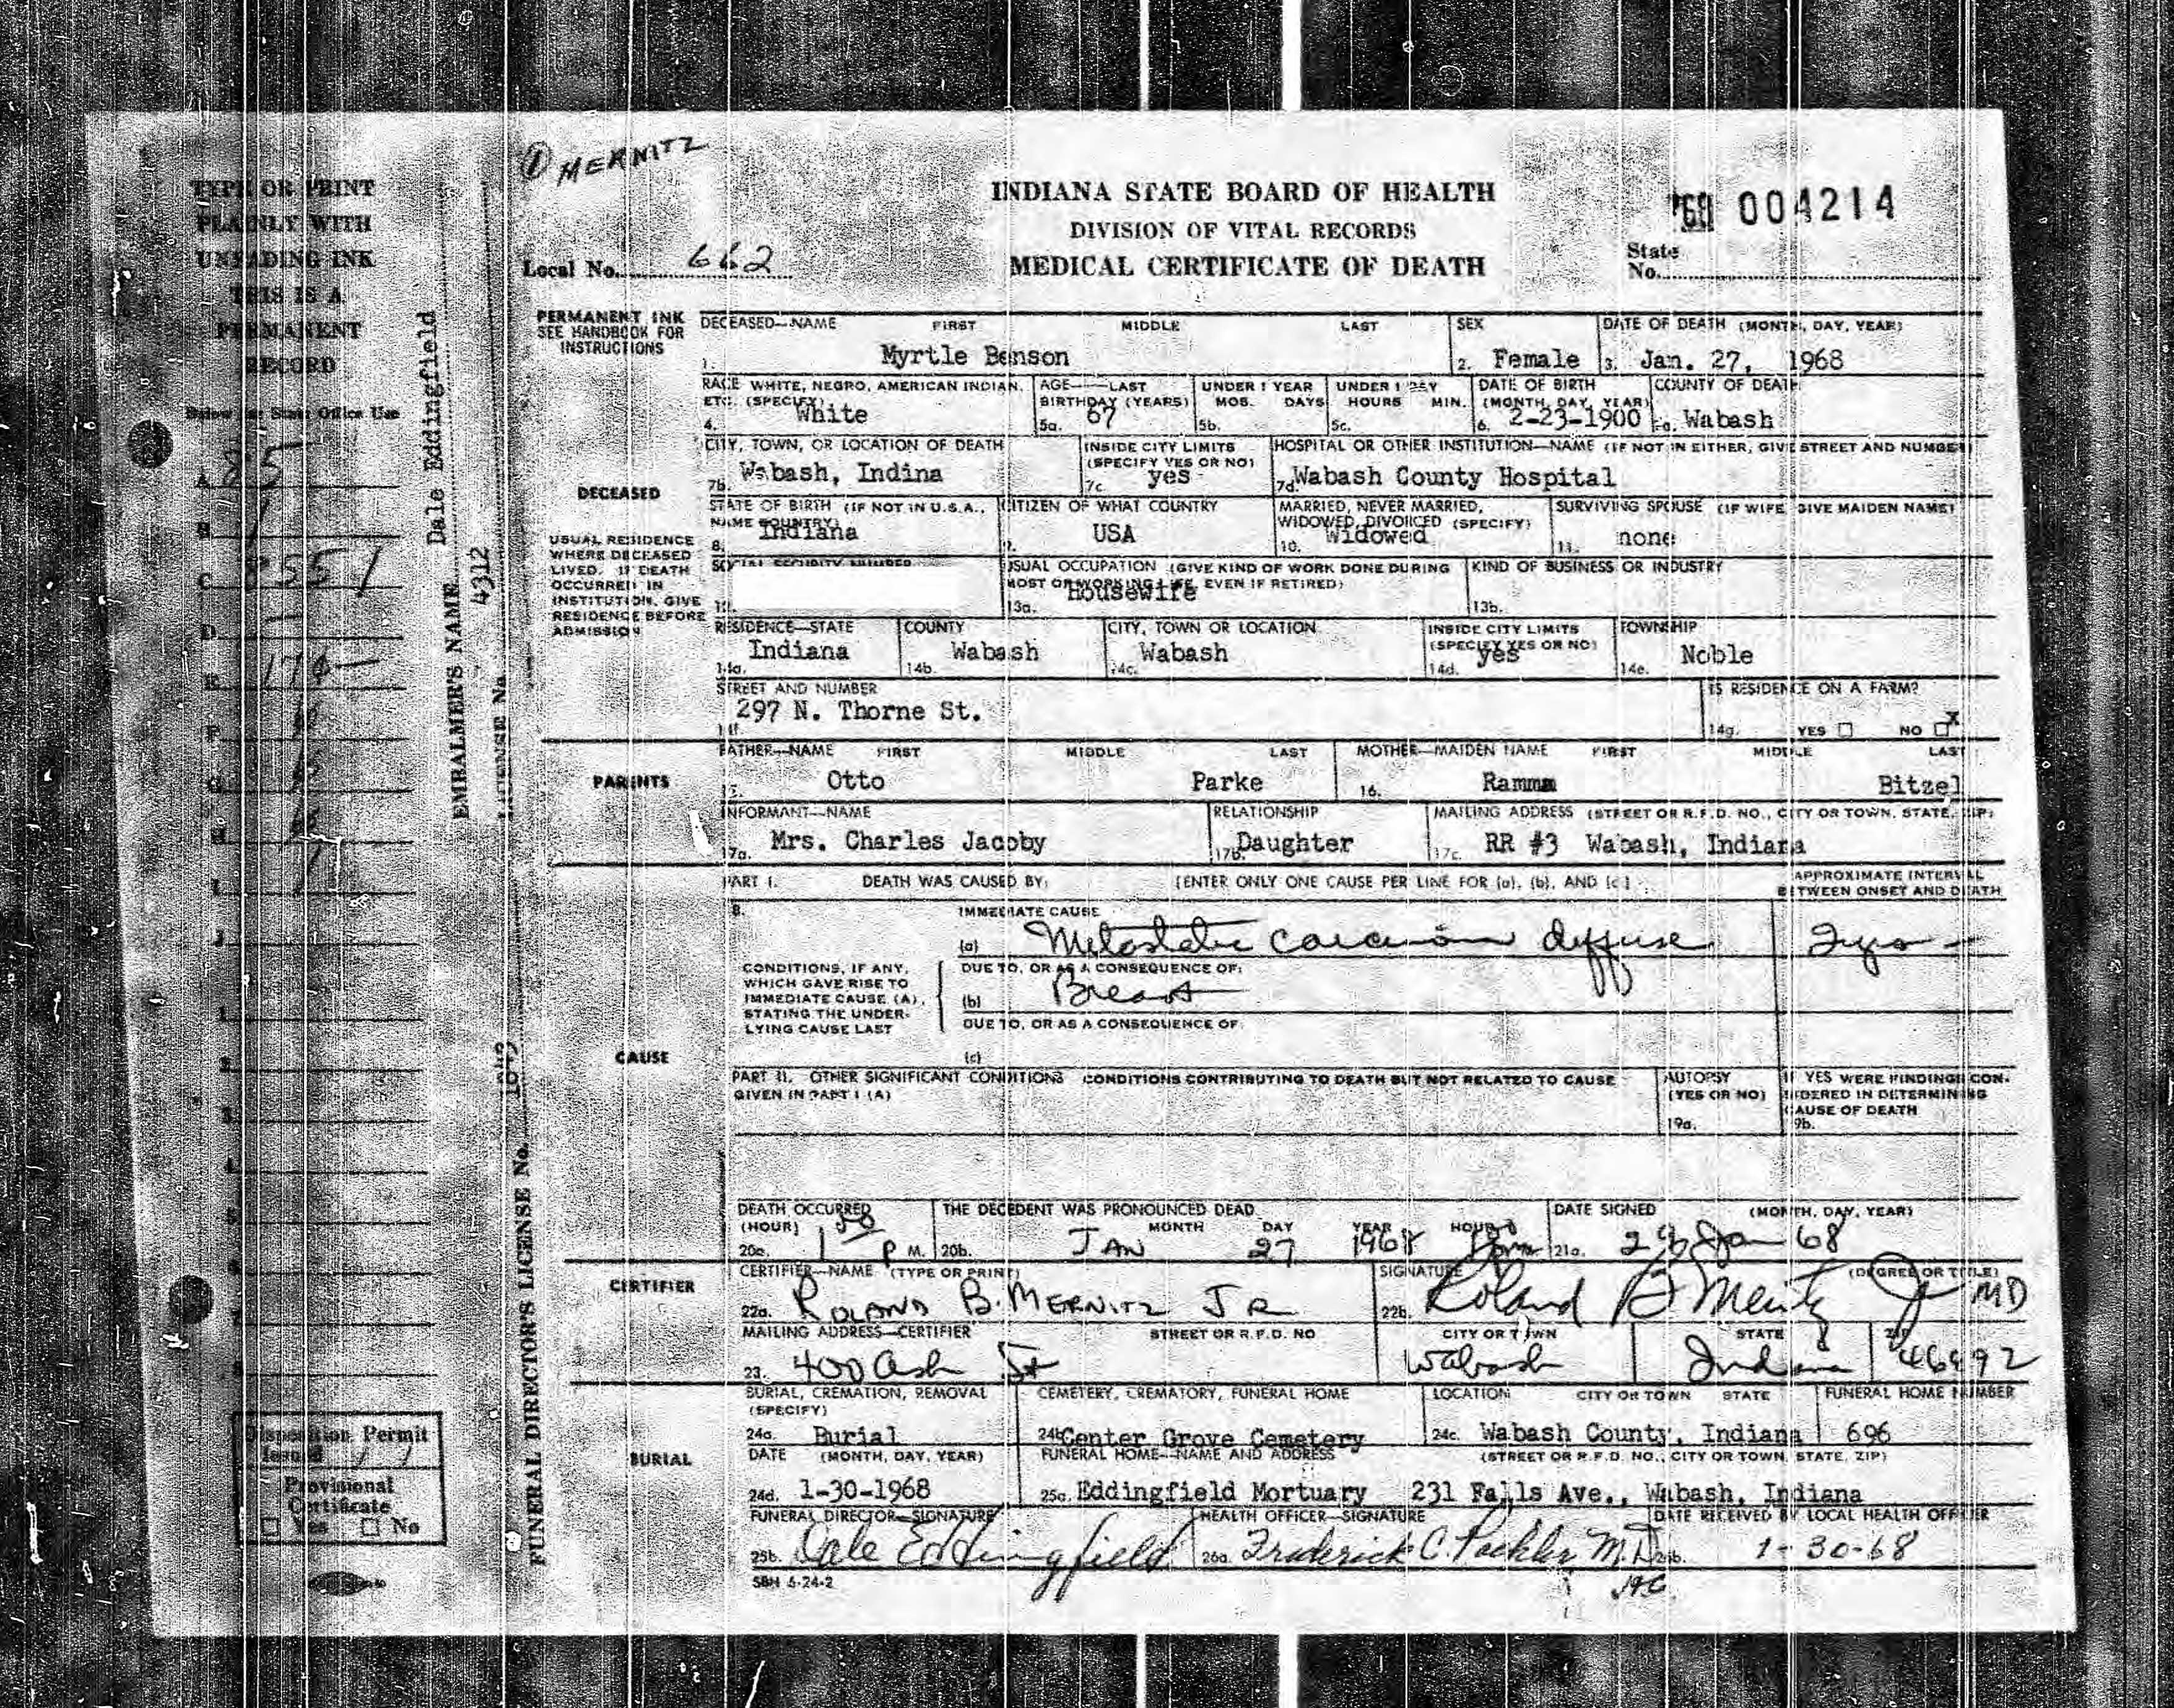 ① MERNITZ
TYPE OR PRINT
PLAINLY WITH
UNFADING INK
THIS IS A
PERMANENT
RECORD
Below for State Office Use
INDIANA STATE BOARD OF HEALTH
DIVISION OF VITAL RECORDS
MEDICAL CERTIFICATE OF DEATH
Local No.
004214
State
No.
EMBALMER'S NAME Dale Eddingfield
LICENSE No. 4312
FUNERAL DIRECTOR'S LICENSE No.
PERMANENT INK
SEE HANDBOOK FOR
INSTRUCTIONS
DECEASED—NAME FIRST MIDDLE LAST SEX DATE OF DEATH (MONTH, DAY, YEAR)
1. Myrtle Benson 2. Female 3. Jan. 27, 1968
RACE WHITE, NEGRO, AMERICAN INDIAN, AGE—LAST UNDER 1 YEAR UNDER 1 DAY DATE OF BIRTH COUNTY OF DEATH
ETC. (SPECIFY) BIRTHDAY (YEARS) MOS. DAYS HOURS MIN. (MONTH, DAY, YEAR)
4. White 5a. 67 5b. 5c. 6. 2-23-1900 Wabash
CITY, TOWN, OR LOCATION OF DEATH INSIDE CITY LIMITS HOSPITAL OR OTHER INSTITUTION—NAME (IF NOT IN EITHER, GIVE STREET AND NUMBER)
(SPECIFY YES OR NO)
7b. Wabash, Indina 7c. yes 7d. Wabash County Hospital
DECEASED
STATE OF BIRTH (IF NOT IN U.S.A., CITIZEN OF WHAT COUNTRY MARRIED, NEVER MARRIED, SURVIVING SPOUSE (IF WIFE, GIVE MAIDEN NAME)
NAME COUNTRY) WIDOWED, DIVORCED (SPECIFY)
8. Indiana 9. USA 10. Widowed 11. none
USUAL RESIDENCE
WHERE DECEASED
LIVED. IF DEATH
OCCURRED IN
INSTITUTION, GIVE
RESIDENCE BEFORE
ADMISSION
SOCIAL SECURITY NUMBER USUAL OCCUPATION (GIVE KIND OF WORK DONE DURING KIND OF BUSINESS OR INDUSTRY
MOST OF WORKING LIFE, EVEN IF RETIRED)
13a. Housewife 13b.
RESIDENCE—STATE COUNTY CITY, TOWN OR LOCATION INSIDE CITY LIMITS TOWNSHIP
(SPECIFY YES OR NO)
14a. Indiana 14b. Wabash 14c. Wabash 14d. yes 14e. Noble
STREET AND NUMBER IS RESIDENCE ON A FARM?
14f. 297 N. Thorne St. 14g. YES ☐ NO ☒
PARENTS
FATHER—NAME FIRST MIDDLE LAST MOTHER—MAIDEN NAME FIRST MIDDLE LAST
15. Otto Parke 16. Ramma Bitzel
INFORMANT—NAME RELATIONSHIP MAILING ADDRESS (STREET OR R.F.D. NO., CITY OR TOWN, STATE, ZIP)
17a. Mrs. Charles Jacoby 17b. Daughter 17c. RR #3 Wabash, Indiana
PART I. DEATH WAS CAUSED BY: [ENTER ONLY ONE CAUSE PER LINE FOR (a), (b), AND (c)] APPROXIMATE INTERVAL
BETWEEN ONSET AND DEATH
IMMEDIATE CAUSE
(a) Metastatic carcinoma diffuse 2 yrs
CONDITIONS, IF ANY,
WHICH GAVE RISE TO
IMMEDIATE CAUSE (A),
STATING THE UNDER-
LYING CAUSE LAST
DUE TO, OR AS A CONSEQUENCE OF:
(b) Breast
DUE TO, OR AS A CONSEQUENCE OF:
(c)
CAUSE
PART II. OTHER SIGNIFICANT CONDITIONS CONDITIONS CONTRIBUTING TO DEATH BUT NOT RELATED TO CAUSE
GIVEN IN PART I (A)
AUTOPSY
(YES OR NO)
19a.
IF YES WERE FINDINGS CON-
SIDERED IN DETERMINING
CAUSE OF DEATH
19b.
DEATH OCCURRED THE DECEDENT WAS PRONOUNCED DEAD DATE SIGNED (MONTH, DAY, YEAR)
(HOUR) MONTH DAY YEAR HOUR
1 50 P M. 20b. JAN 27 1968 21a. Jan 68
CERTIFIER
CERTIFIER—NAME (TYPE OR PRINT) SIGNATURE (DEGREE OR TITLE)
22a. ROLAND B. MERNITZ JR 22b. Roland B Mernitz Jr MD
MAILING ADDRESS—CERTIFIER STREET OR R.F.D. NO CITY OR TOWN STATE ZIP
23. 400 Ash St Wabash Indiana 46992
BURIAL
BURIAL, CREMATION, REMOVAL CEMETERY, CREMATORY, FUNERAL HOME LOCATION CITY OR TOWN STATE FUNERAL HOME NUMBER
(SPECIFY)
24a. Burial 24b. Center Grove Cemetery 24c. Wabash County, Indiana 696
DATE (MONTH, DAY, YEAR) FUNERAL HOME—NAME AND ADDRESS (STREET OR R.F.D. NO., CITY OR TOWN, STATE, ZIP)
24d. 1-30-1968 25a. Eddingfield Mortuary 231 Falls Ave., Wabash, Indiana
FUNERAL DIRECTOR—SIGNATURE HEALTH OFFICER—SIGNATURE DATE RECEIVED BY LOCAL HEALTH OFFICER
25b. Dale Eddingfield 26a. Frederick C. Poehler M.D. 26b. 1-30-68
SBH 6-24-2
Disposition Permit
Issued / /
Provisional
Certificate
☐ Yes ☐ No